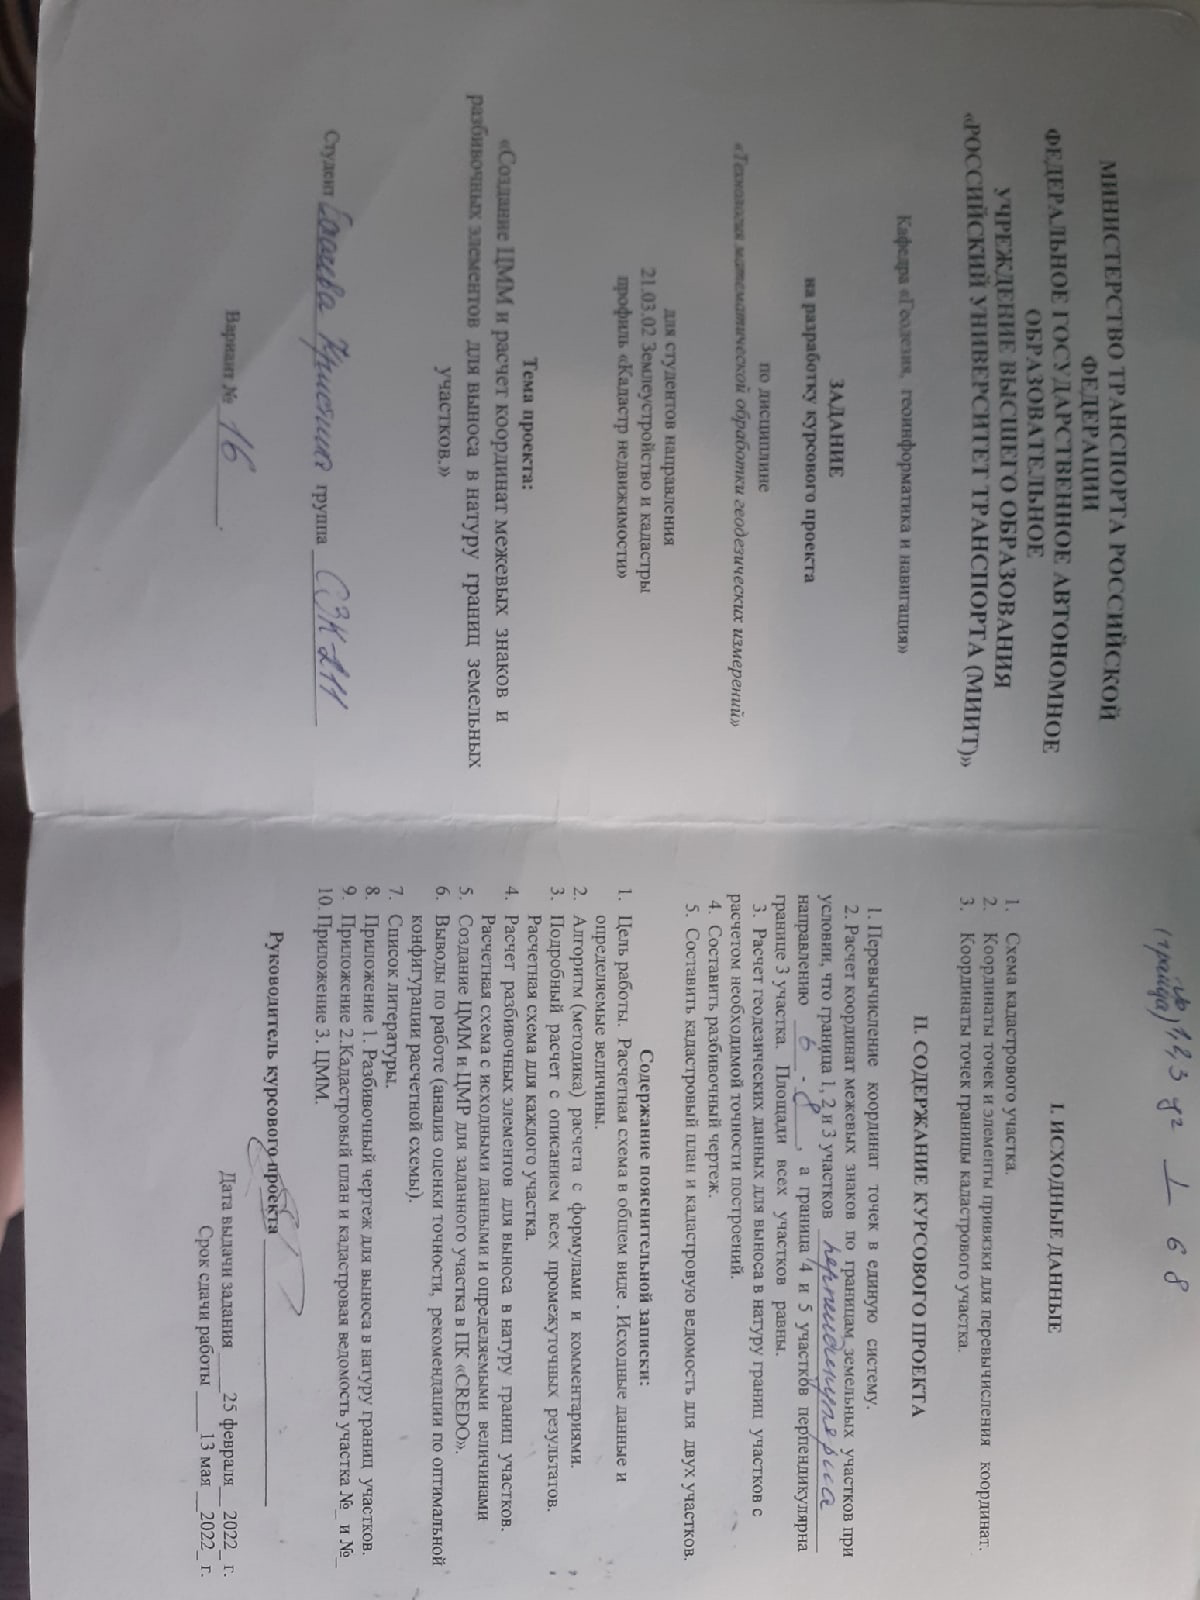 МИНИСТЕРСТВО ТРАНСПОРТА РОССИЙСКОЙ
ФЕДЕРАЦИИ
ФЕДЕРАЛЬНОЕ ГОСУДАРСТВЕННОЕ АВТОНОМНОЕ
ОБРАЗОВАТЕЛЬНОЕ
УЧРЕЖДЕНИЕ ВЫСШЕГО ОБРАЗОВАНИЯ
«РОССИЙСКИЙ УНИВЕРСИТЕТ ТРАНСПОРТА (МИИТ)»
Кафедра «Геодезия, геоинформатика и навигация»
ЗАДАНИЕ
на разработку курсового проекта
по дисциплине
«Технология математической обработки геодезических измерений»
для студентов направления
21.03.02 Землеустройство и кадастры
профиль «Кадастр недвижимости»
Тема проекта:
«Создание ЦММ и расчет координат межевых знаков и
разбивочных элементов для выноса в натуру границ земельных
участков.»
Студент Кристина группа СЗК-211
Вариант № 16.
1,2,3 уч ⊥ 6 8
(граница)
I. ИСХОДНЫЕ ДАННЫЕ
1. Схема кадастрового участка.
2. Координаты точек и элементы привязки для перевычисления координат.
3. Координаты точек границы кадастрового участка.
II. СОДЕРЖАНИЕ КУРСОВОГО ПРОЕКТА
1. Перевычисление координат точек в единую систему.
2. Расчет координат межевых знаков по границам земельных участков при
условии, что граница 1, 2 и 3 участков перпендикулярна
направлению 6 - 8, а граница 4 и 5 участков перпендикулярна
границе 3 участка. Площади всех участков равны.
3. Расчет геодезических данных для выноса в натуру границ участков с
расчетом необходимой точности построений.
4. Составить разбивочный чертеж.
5. Составить кадастровый план и кадастровую ведомость для двух участков.
Содержание пояснительной записки:
1. Цель работы. Расчетная схема в общем виде . Исходные данные и
определяемые величины.
2. Алгоритм (методика) расчета с формулами и комментариями.
3. Подробный расчет с описанием всех промежуточных результатов.
Расчетная схема для каждого участка.
4. Расчет разбивочных элементов для выноса в натуру границ участков.
Расчетная схема с исходными данными и определяемыми величинами
5. Создание ЦММ и ЦМР для заданного участка в ПК «CREDO».
6. Выводы по работе (анализ оценки точности, рекомендации по оптимальной
конфигурации расчетной схемы).
7. Список литературы.
8. Приложение 1. Разбивочный чертеж для выноса в натуру границ участков.
9. Приложение 2.Кадастровый план и кадастровая ведомость участка №_ и №_
10. Приложение 3. ЦММ.
Руководитель курсового проекта
Дата выдачи задания 25 февраля 2022 г.
Срок сдачи работы 13 мая 2022 г.